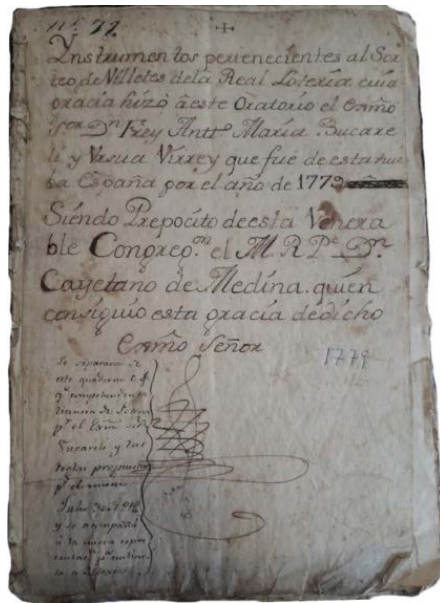 nº 77
Ynstrumentos pertenecientes al Sor
teo de Villetes dela Real Lotería cuia
gracia hizo à este Oratorio el Exmõ
Sor Dn Frey Antto María Bucare
li y Vrsua Virrey que fue de esta nue
ba España por el año de 1779
Siendo Prepocito deesta Venera
ble Congregon el M. R. Pe Dn
Cayetano de Medina quien
consiguio esta gracia dedicho
Exmõ Señor
1779
Se separaron de
este quaderno
licencia de
pr el Exmo Sor
Bucareli y las
reglas
pr el mismo
Julio
y se acompañó
à la nueva